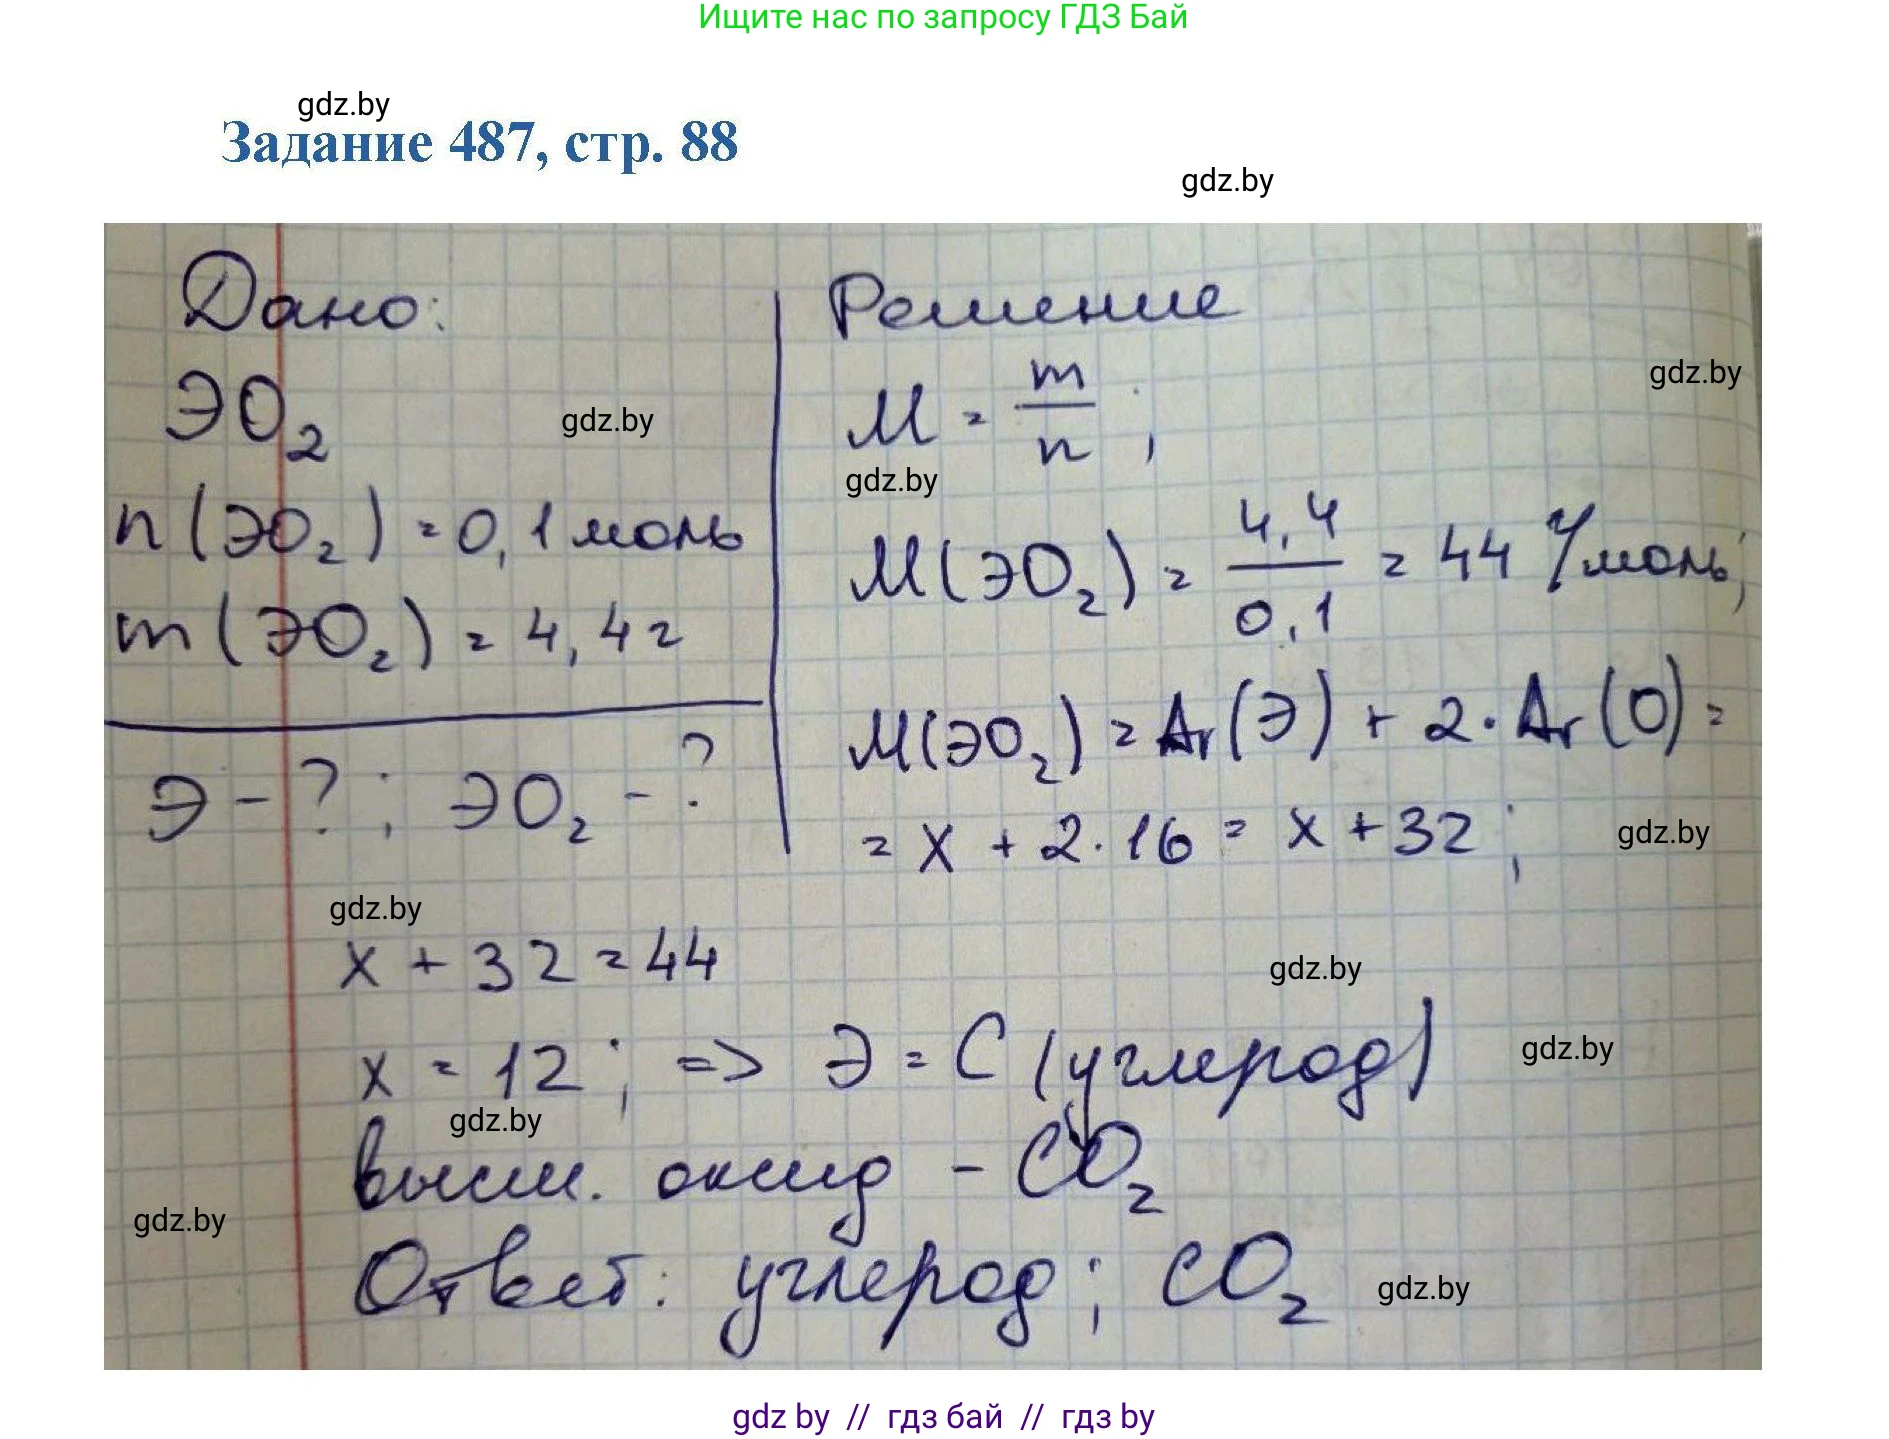 Ищите нас по запросу ГДЗ Бай
gdz.by
Задание 487, стр. 88
gdz.by
Дано:
ЭO₂
n(ЭO₂) = 0,1 моль
m(ЭO₂) = 4,4 г
Э - ?; ЭO₂ - ?
Решение
M = m/n;
M(ЭO₂) = 4,4/0,1 = 44 г/моль;
M(ЭO₂) = Ar(Э) + 2·Ar(O) =
= x + 2·16 = x + 32;
x + 32 = 44
x = 12; => Э = C (углерод)
высш. оксид - CO₂
Ответ: углерод; CO₂
gdz.by
gdz.by
gdz.by
gdz.by
gdz.by
gdz.by
gdz.by
gdz.by
gdz.by
gdz.by
gdz by // гдз бай // гдз by